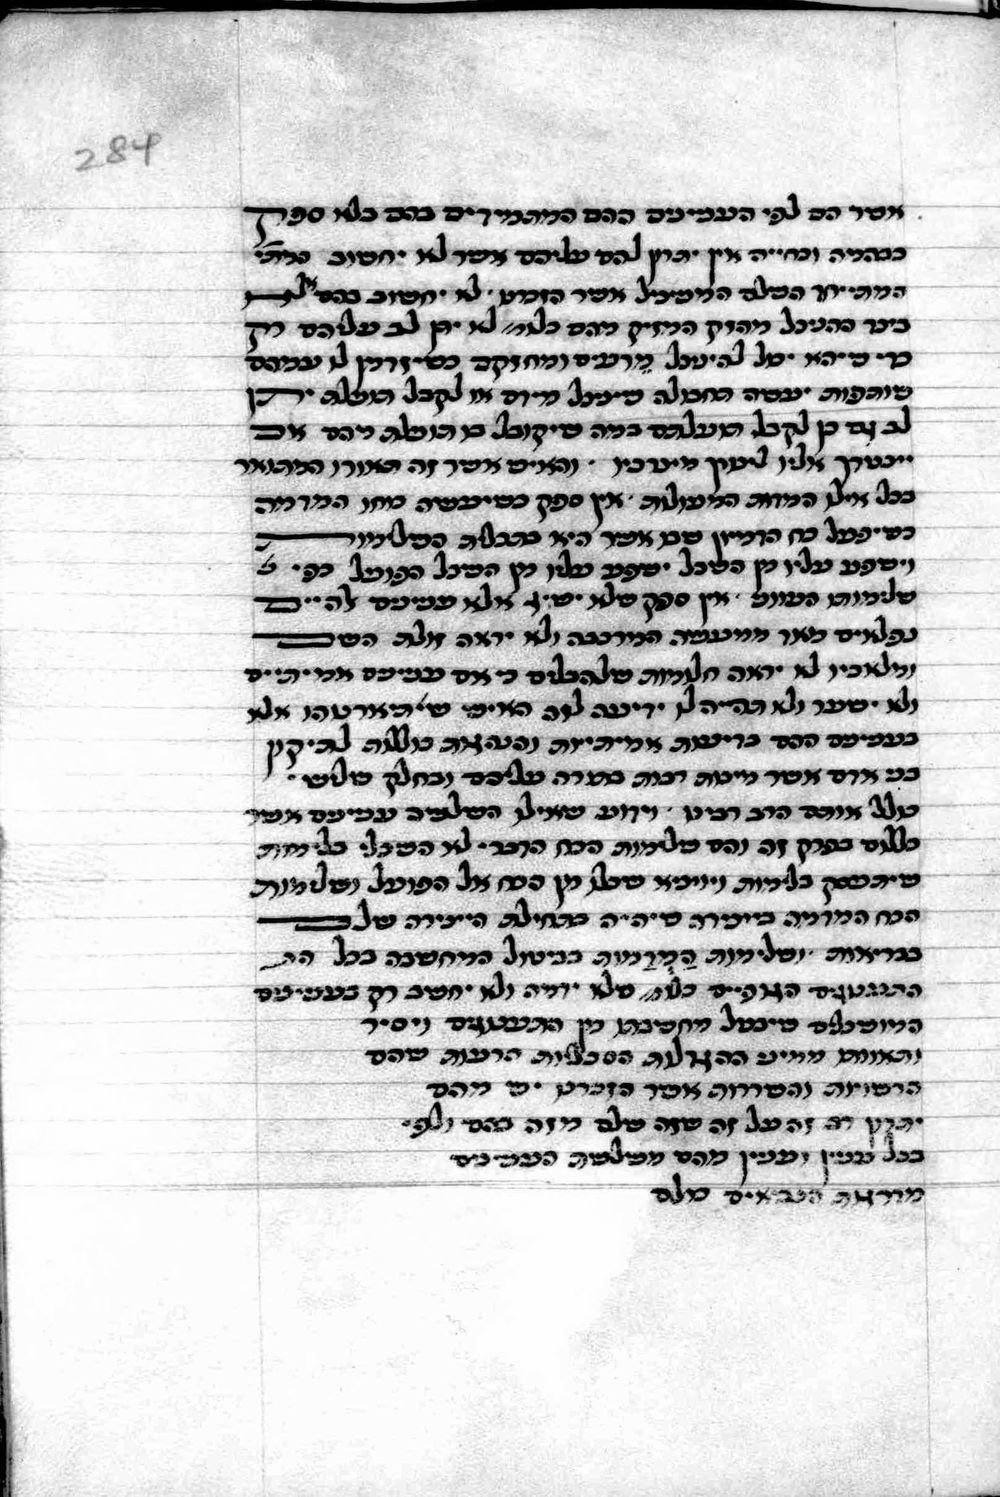 284
אשר הם לפי הענינים ההם המתמידים בהם בלא ספק
כבהמה וכחייה אין יתרון להם עליהם אשר לא יחשוב
המתייחד השלם המשכיל אשר הזכרנו לא יחשוב בהם
כי אם להנצל מהזק המזיק מהם לא יתן לב עליהם רק
כדי שיהא יכול להינצל מרעים ומחזקם כשיזדמן לו עמהם
שותפות יעשה תחבולה שינצל מידם או לקבל תועלת יתן
לב גם כן לקבל תועלתם במה שיקובל בו תועלת מהם אם
יצטרך אליו לצורך מצרכיו והאיש אשר זה תוארו המתואר
בכל אילו המדות המעולות אין ספק כשיעשה כחו המדמה
כשיפעל כח הדמיון שבו אשר היא בתכלית השלימות
וישפע עליו מן השכל ישפע עליו מן השכל הפועל כפי
שלימותו העיוני אין ספק שלא ישיג אלא ענינים להיים
נפלאים מאד ממעשה המרכבה ולא יראה זולת השם
ומלאכיו לא יראה חלומות שלהבלים כי אם ענינים אמיתיים
ולא ישער ולא תהייה לו ידיעה לזה האיש אלא
בענינים ההם בדיעות אמיתיות והנהגות כוללות לתיקון
בני אדם אשר מיטות רבות בתורה עליהם ובחלק שליש
כולל אותם הרב רבינו וידוע שאילו השלשה ענינים אשר
כללום בפרק זה והם שלימות הכח הדברי לא השכלי בלימוד
שיתעסק בלימוד ויוציא שכלו מן הכח אל הפועל ושלימות
הכח המדמה ביצירה שיהיה בתחילת היצירה שלם
בבריאות ושלימות המדמות בביטול המחשבה בכל
התענוגים הגופיים שלא ידמה ולא יחשב רק בענינים
המושכלים שיבטל מחשבתו מן התענוגים ויסיר
תאותו ממיני ההגדלות הסכליות הרעות שהם
הרשויות והשררות אשר הזכרנו יש מהם
יתרון רב זה על זה שזה שלם מזה בהם ולפי
בכל ענין וענין מהם משלשה הענינים
מדרגת הנביאים כולם